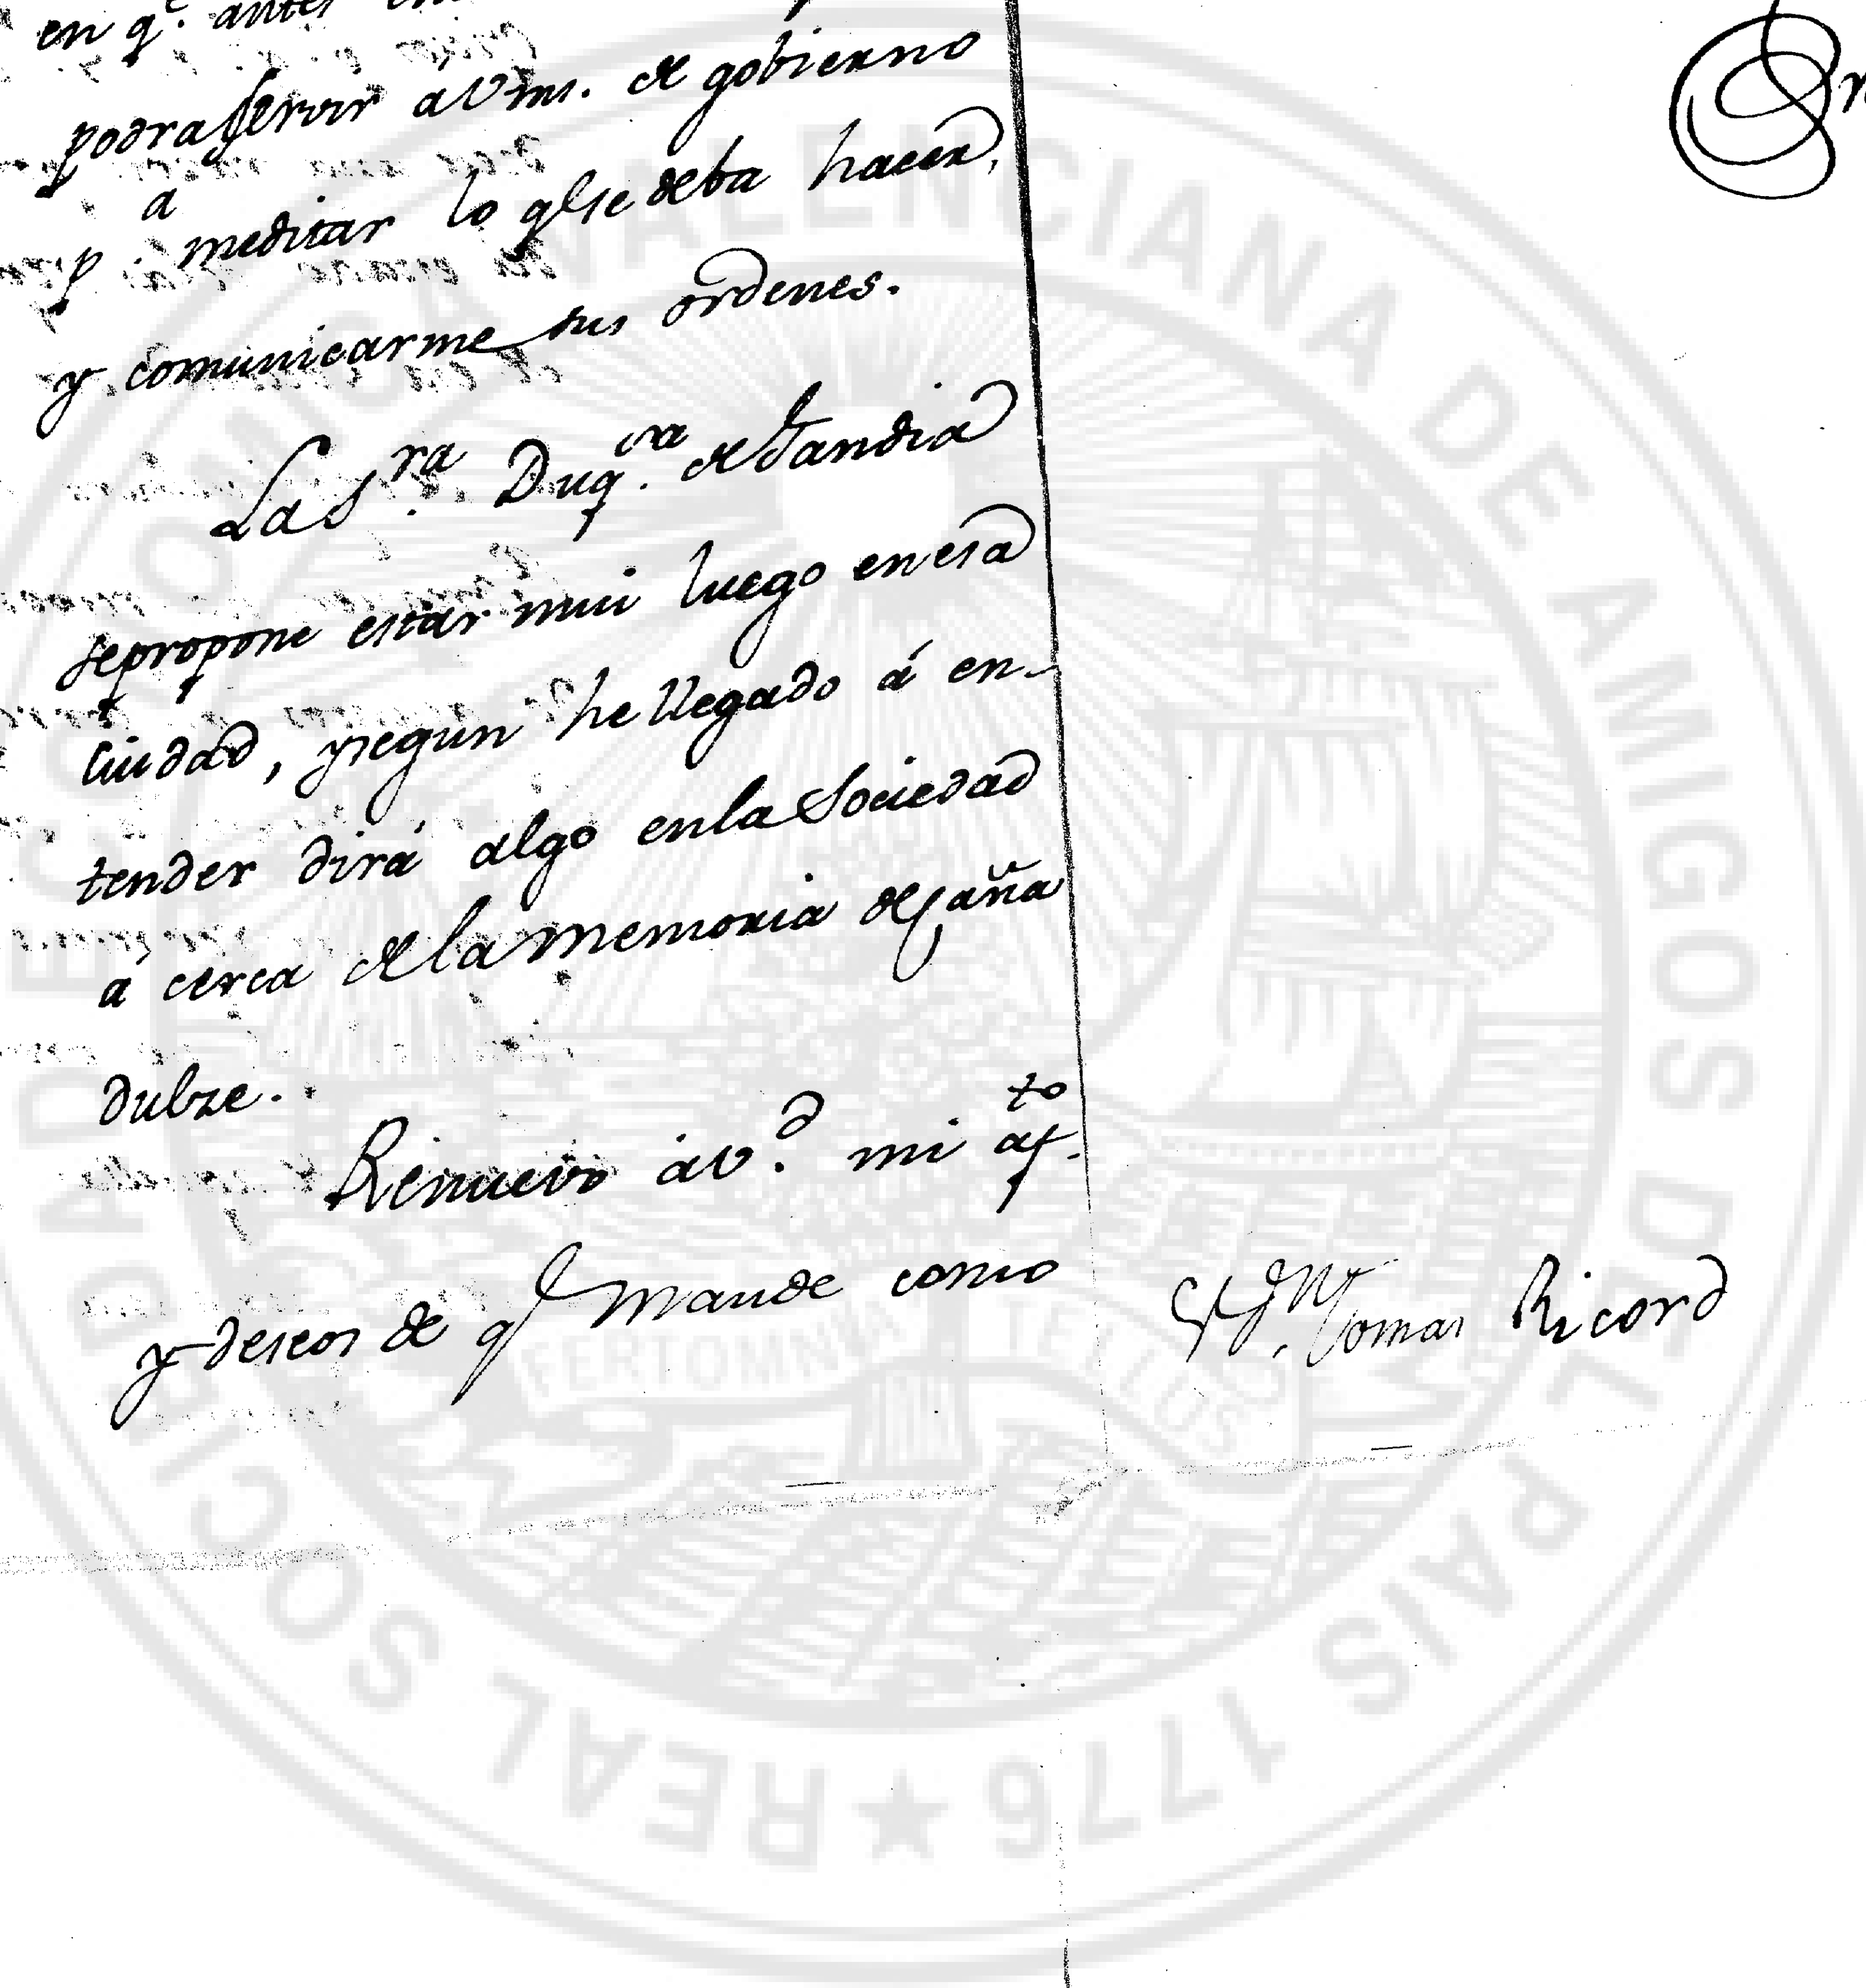 en q.^e antes
podra servir a Vms. de gobierno
p.^a meditar lo q.^e se deba hacer,
y comunicarme sus ordenes.
La S.^ra Duq.^sa de Gandia
se propone estar mui luego en esa
Ciudad, y segun he llegado á en-
tender dirá algo en la Sociedad
á cerca de la memoria de Caña
dulze.
Renuevo á V.^d mi af.^to
y deseos de q.^e mande como
S.^r D.^n Tomas Ricord
REAL SOCIEDAD ECONOMICA VALENCIANA DE AMIGOS DEL PAIS 1776